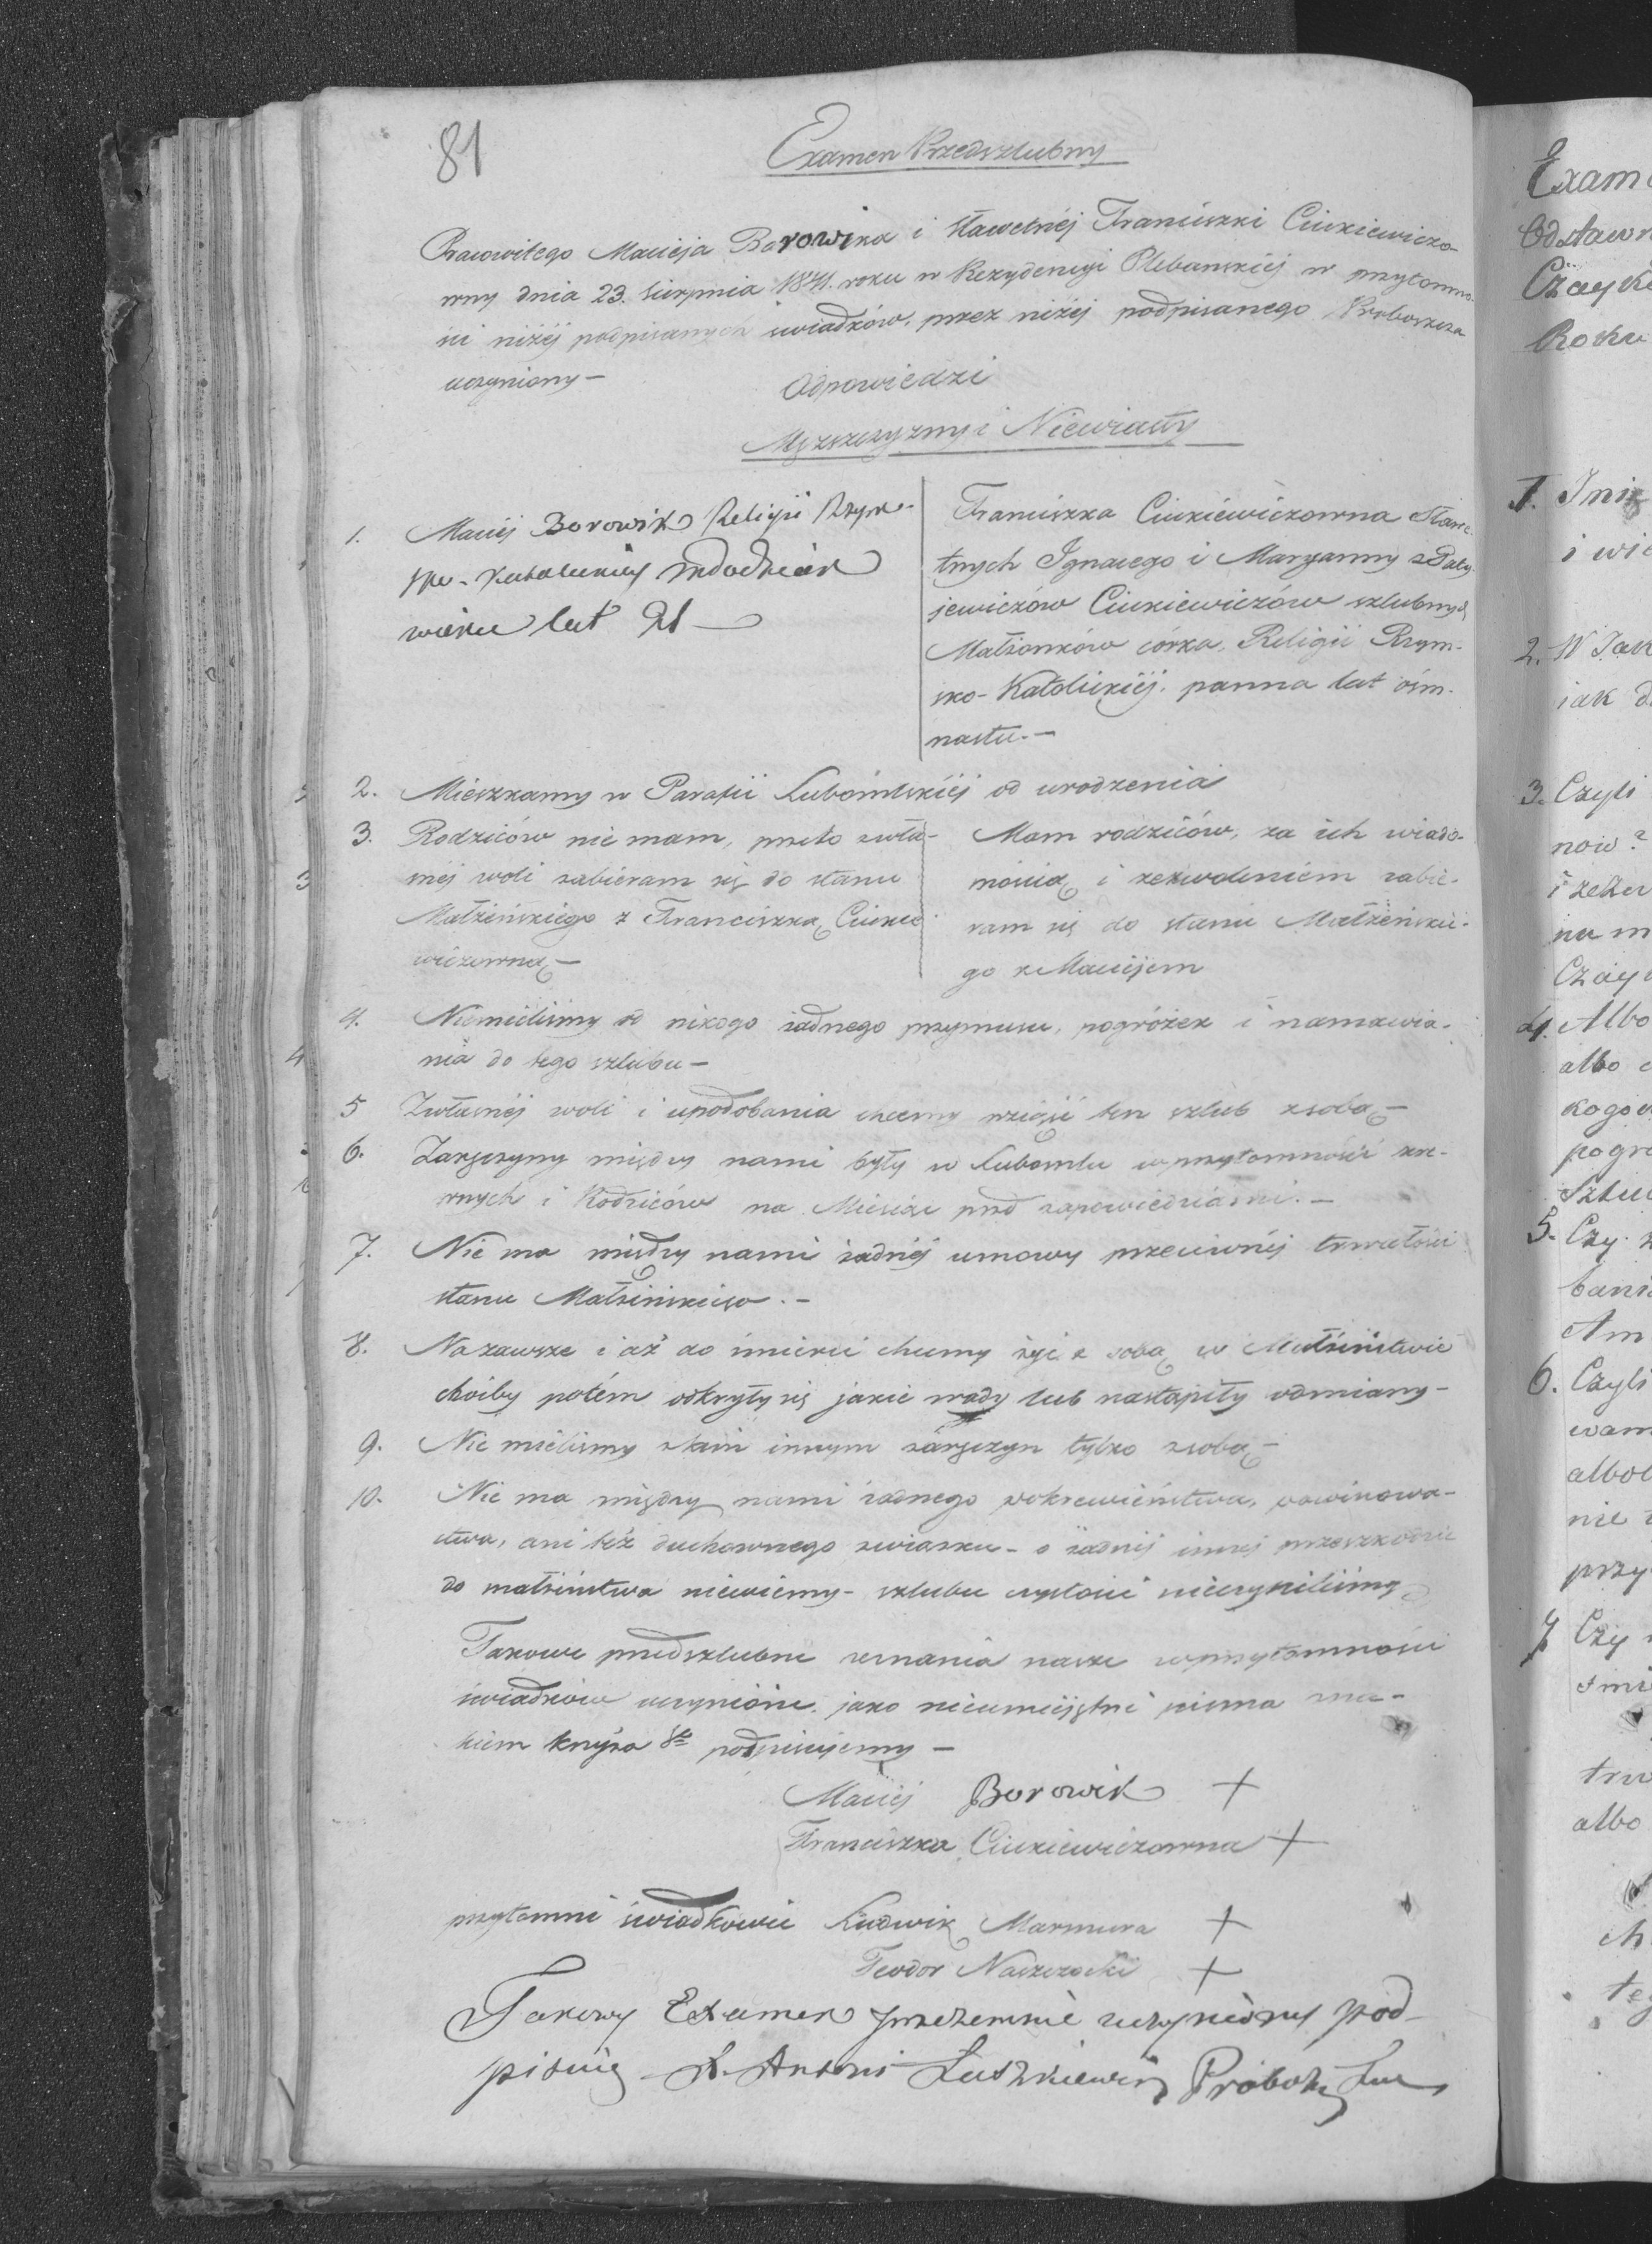 81
Examen Przedszlubny
Pracowitego Macieja Borowika i Sławetnéj Franciszki Ciukiewiczo-
wny dnia 23. Sierpnia 1841. roku w Rezydencyi Plebanskiéj w przytomno-
ści niżéj podpisanych swiadków, przez niżéj podpisanego Proboszcza
uczyniony -
Odpowiedzi
Męzszczyzny i Niewiasty
1. Maciéj Borowik Religii Rzym-
sko-Katolickiey młodzian
wieku lat 21 —
Franciszka Ciukiewiczowna Sławe-
tnych Ignacego i Maryanny z
jewiczów Ciukiewiczów szlubnych
Małżonków córka, Religii Rzym-
sko-Katolickiéj, panna lat ośm-
nastu. -
2. Mieszkamy w Parafii Lubomlskiéj od urodzenia
3. Rodziców nie mam, przeto zwła-
snéj woli zabieram się do stanu
Małżeńskiego z Franciszką Ciukie-
wiczowną -
Mam rodziców, za ich wiado-
mością i zezwoleniem zabie-
ram się do stanu Małżeńskie-
go z Maciejem
4. Niemieliśmy od nikogo żadnego przymusu, pogróżek i namawia-
nia do tego szlubu -
5 Zwłasnéj woli i upodobania chcemy wziąść ten szlub zsobą -
6. Zaręczyny między nami były w Lubomlu wprzytomności kre-
wnych i Rodziców na Miesiąc przed zapowiedziami. -
7. Nie ma między nami żadnéj umowy przeciwnéj trwałości
stanu Małżeńskiego. -
8. Na zawsze i aż do śmierci chcemy żyć z sobą w Małżeństwie
choiby potém odkryły się jakie wady lub nastąpiły odmiany -
9. Nie mieliśmy zkim innym zaręczyn tylko zsobą -
10. Nie ma między nami żadnego pokrewieństwa, powinowa-
ctwa, ani też duchownego związku - o żadnéj innéj przeszkodzie
do małżeństwa niewiemy - szlubu czystości nieczyniliśmy
Takowe przedszlubne zeznania nasze wprzytomności
świadków uczynione, jako nieumiejętni pisma zna-
kiem krzyża Sgo podpisujemy -
Maciéj Borowik +
Franciszka Ciukiewiczowna +
przytomni świadkowie Ludwik Marmura +
Teodor +
Takowy Examen przezemnie uczyniony pod-
pisuię X. Antoni Proboszcz